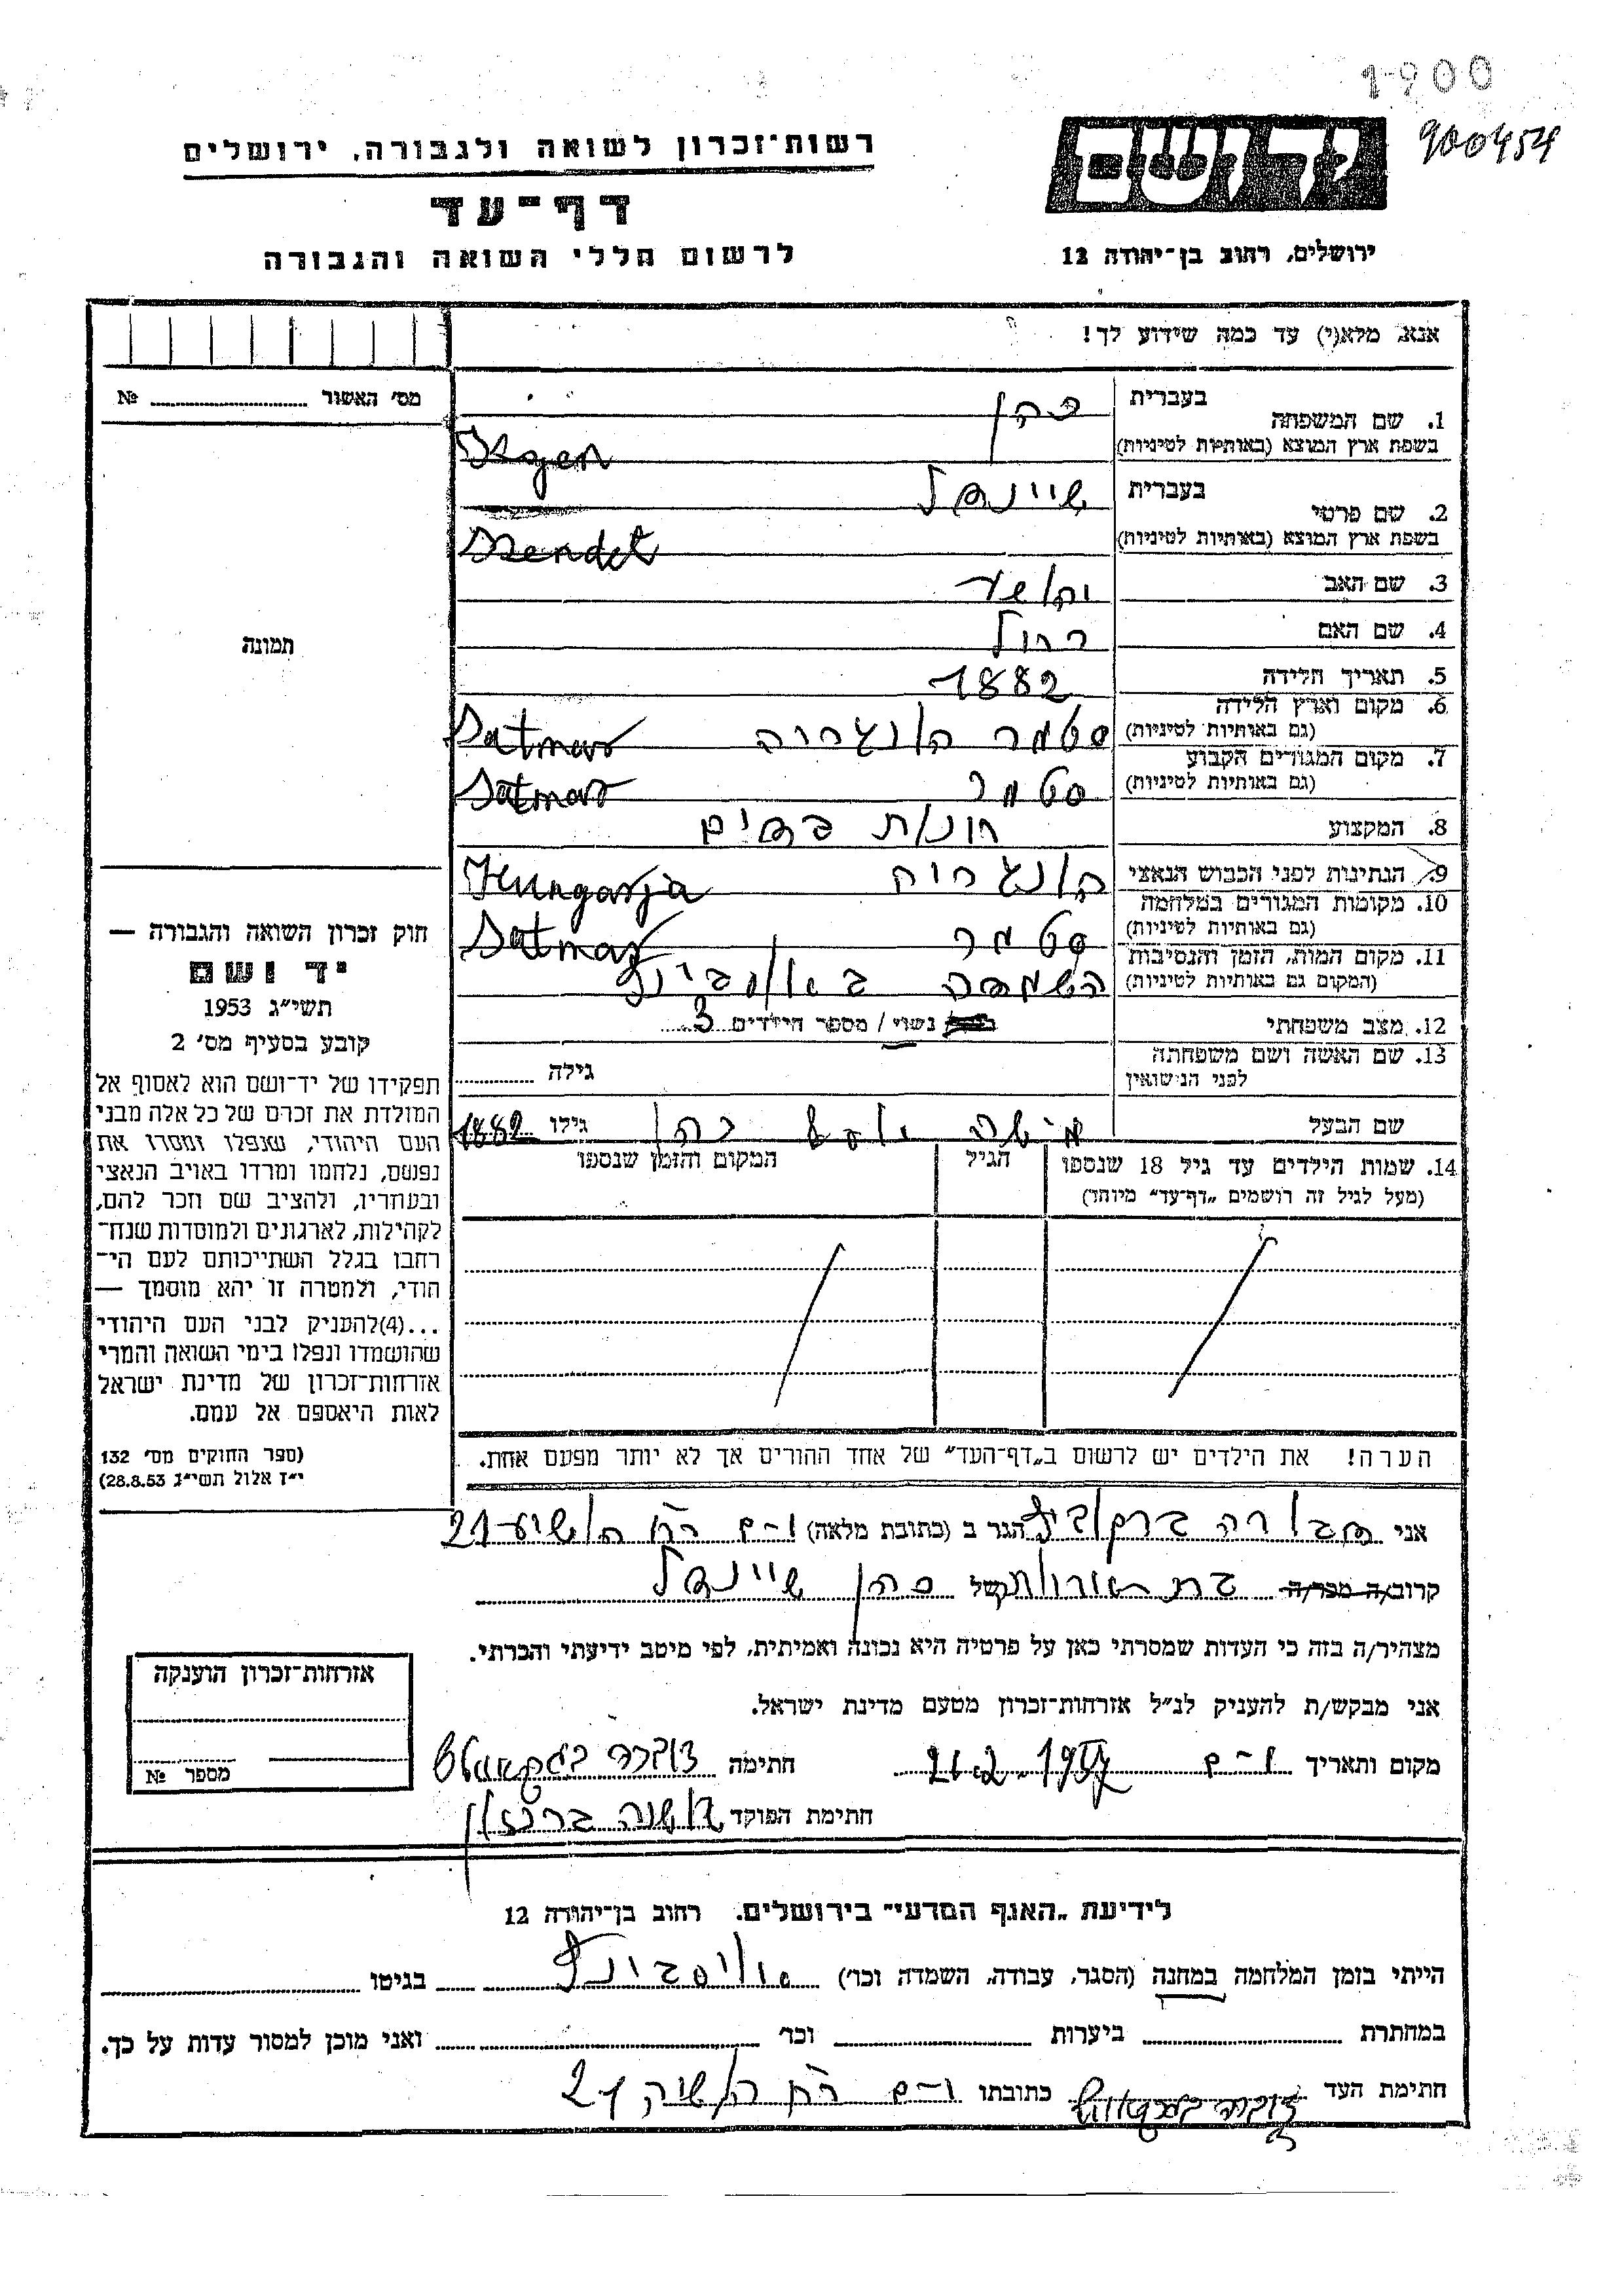 1900
900454
ידושם
ירושלים, רחוב בן־יהודה 12
רשות־זכרון לשואה ולגבורה, ירושלים
דף־עד
לרשום חללי השואה והגבורה
אנא, מלא(י) עד כמה שידוע לך!
מס׳ האשור № 
1. שם המשפחה בעברית כהן
בשפת ארץ המוצא (באותיות לטיניות)
2. שם פרטי בעברית שיינדל
בשפת ארץ המוצא (באותיות לטיניות)
3. שם האב
4. שם האם רחל
5. תאריך הלידה 1882
6. מקום וארץ הלידה (גם באותיות לטיניות) סטמר הונגריה Satmar
7. מקום המגורים הקבוע (גם באותיות לטיניות) סטמר Satmar
8. המקצוע חנות בדים
9. הנתינות לפני הכבוש הנאצי הונגריה Hungarja
10. מקומות המגורים במלחמה (גם באותיות לטיניות) סטמר Satmar
11. מקום המות, הזמן והנסיבות (המקום גם באותיות לטיניות) השמדה באושוויץ
12. מצב משפחתי נשוי / מספר הילדים 3
13. שם האשה ושם משפחתה לפני הנישואין גילה
שם הבעל כהן גילו 1882
14. שמות הילדים עד גיל 18 שנספו
(מעל לגיל זה רושמים „דף־עד״ מיוחד)
הגיל
המקום והזמן שנספו
הערה! את הילדים יש לרשום ב„דף־העד״ של אחד ההורים אך לא יותר מפעם אחת.
תמונה
חוק זכרון השואה והגבורה —
יד ושם
תשי״ג 1953
קובע בסעיף מס׳ 2
תפקידו של יד־ושם הוא לאסוף אל
המולדת את זכרם של כל אלה מבני
העם היהודי, שנפלו ומסרו את
נפשם, נלחמו ומרדו באויב הנאצי
ובעוזריו, ולהציב שם וזכר להם,
לקהילות, לארגונים ולמוסדות שנח־
רחבו בגלל השתייכותם לעם הי־
הודי, ולמטרה זו יהא מוסמך —
...(4)להעניק לבני העם היהודי
שהושמדו ונפלו בימי השואה והמרי
אזרחות־זכרון של מדינת ישראל
לאות היאספם אל עמם.
(ספר החוקים מס׳ 132
י״ז אלול תשי״ג 28.8.53)
אני דבורה ברקוביץ הגר ב (כתובת מלאה) י-ם רח 21
קרוב/ה מכר/ה של כהן שיינדל
מצהיר/ה בזה כי העדות שמסרתי כאן על פרטיה היא נכונה ואמיתית, לפי מיטב ידיעתי והכרתי.
אני מבקש/ת להעניק לנ״ל אזרחות־זכרון מטעם מדינת ישראל.
מקום ותאריך י-ם חתימה
חתימת הפוקד
אזרחות־זכרון הוענקה
מספר №
לידיעת „האגף המדעי״ בירושלים. רחוב בן־יהודה 12
הייתי בזמן המלחמה במחנה (הסגר, עבודה, השמדה וכו׳) בגיטו
במחתרת ביערות וכו׳ ואני מוכן למסור עדות על כך.
חתימת העד כתובתו י-ם רח 21